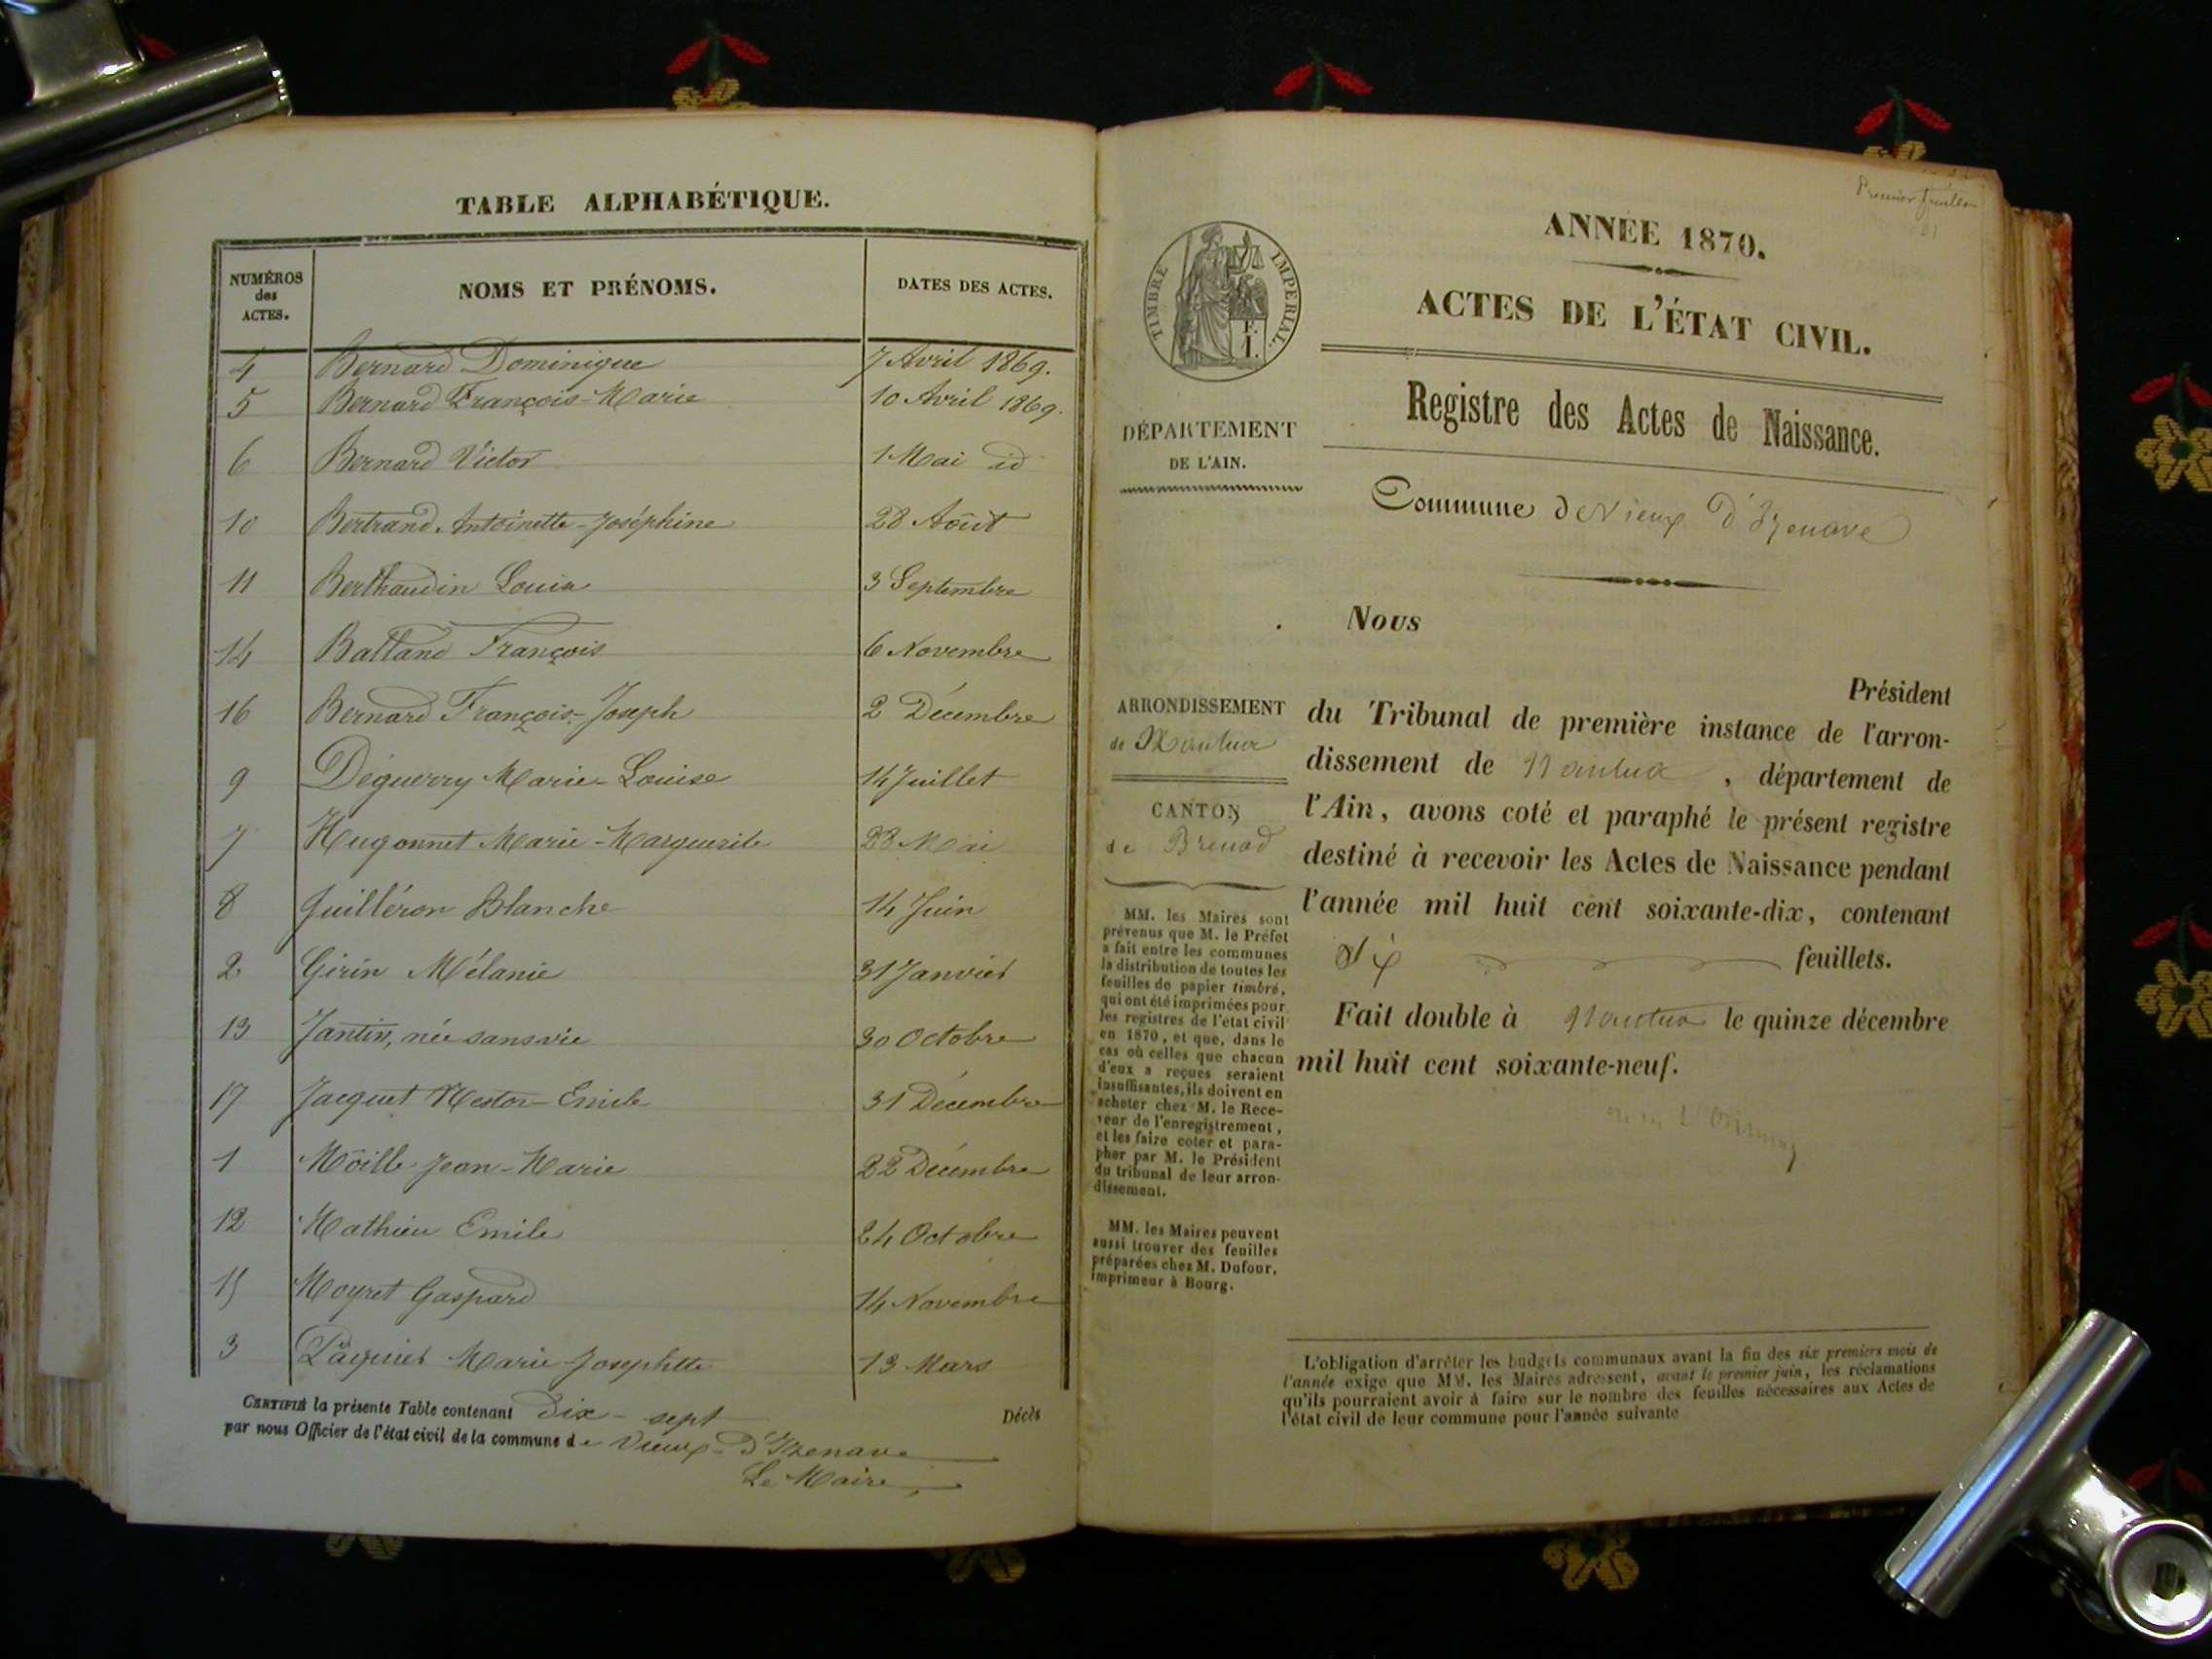 TABLE ALPHABÉTIQUE.
NUMÉROS des ACTES. NOMS ET PRÉNOMS. DATES DES ACTES.
4 Bernard Dominique 7 Avril 1869.
5 Bernard François-Marie 10 Avril 1869.
6 Bernard Victor 1 Mai id
10 Bertrand Antoinette-Joséphine 28 Août
11 Berthaudin Louis 3 Septembre
14 Balland François 6 Novembre
16 Bernard François-Joseph 2 Décembre
9 Déguerry Marie-Louise 14 Juillet
7 Hugonnet Marie-Marguerite 28 Mai
8 Juilléron Blanche 14 Juin
2 Girin Mélanie 31 Janvier
13 Jantin, née sans vie 30 Octobre
17 Jacquet Nestor Emile 31 Décembre
1 Moille Jean-Marie 22 Décembre
12 Mathieu Emile 24 Octobre
15 Moyret Gaspard 14 Novembre
3 Marie Josephtte 13 Mars
CERTIFIÉ la présente Table contenant dix-sept Décès
par nous Officier de l'état civil de la commune de Vieux-d'Izenave
Le Maire,
Premier feuillet
TIMBRE IMPERIAL.
ANNÉE 1870.
ACTES DE L'ÉTAT CIVIL.
Registre des Actes de Naissance.
DÉPARTEMENT
DE L'AIN.
Commune de Vieux D'Izenave
Nous
Président
ARRONDISSEMENT
de Nantua
CANTON
de Brenod
du Tribunal de première instance de l'arron-
dissement de Nantua, département de
l'Ain, avons coté et paraphé le présent registre
destiné à recevoir les Actes de Naissance pendant
l'année mil huit cent soixante-dix, contenant
Six feuillets.
Fait double à Nantua le quinze décembre
mil huit cent soixante-neuf.
MM. les Maires sont
prévenus que M. le Préfet
a fait entre les communes
la distribution de toutes les
feuilles de papier timbré,
qui ont été imprimées pour
les registres de l'état civil
en 1870, et que, dans le
cas où celles que chacun
d'eux a reçues seraient
insuffisantes, ils doivent en
acheter chez M. le Rece-
veur de l'enregistrement,
et les faire coter et para-
pher par M. le Président
du tribunal de leur arron-
dissement.
MM. les Maires peuvent
aussi trouver des feuilles
préparées chez M. Dufour,
imprimeur à Bourg.
L'obligation d'arrêter les budgets communaux avant la fin des six premiers mois de
l'année exige que MM. les Maires adressent, avant le premier juin, les réclamations
qu'ils pourraient avoir à faire sur le nombre des feuilles nécessaires aux Actes de
l'état civil de leur commune pour l'année suivante